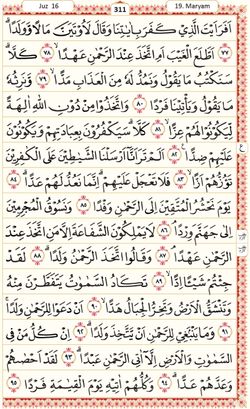 Juz 16 311 19. Maryam
اَفَرَءَيْتَ الَّذِيْ كَفَرَ بِاٰيٰتِنَا وَقَالَ لَاُوْتَيَنَّ مَالًا وَّوَلَدًا ۗ
٧٧ اَطَّلَعَ الْغَيْبَ اَمِ اتَّخَذَ عِنْدَ الرَّحْمٰنِ عَهْدًا ۙ ٧٨ كَلَّا ۗ
سَنَكْتُبُ مَا يَقُوْلُ وَنَمُدُّ لَهٗ مِنَ الْعَذَابِ مَدًّا ۙ ٧٩ وَّنَرِثُهٗ
مَا يَقُوْلُ وَيَأْتِيْنَا فَرْدًا ٨٠ وَاتَّخَذُوْا مِنْ دُوْنِ اللّٰهِ اٰلِهَةً
لِّيَكُوْنُوْا لَهُمْ عِزًّا ۙ ٨١ كَلَّا ۗ سَيَكْفُرُوْنَ بِعِبَادَتِهِمْ وَيَكُوْنُوْنَ
عَلَيْهِمْ ضِدًّا ࣖ ٨٢ اَلَمْ تَرَ اَنَّآ اَرْسَلْنَا الشَّيٰطِيْنَ عَلَى الْكٰفِرِيْنَ
تَؤُزُّهُمْ اَزًّا ۙ ٨٣ فَلَا تَعْجَلْ عَلَيْهِمْ ۗ اِنَّمَا نَعُدُّ لَهُمْ عَدًّا ۗ ٨٤
يَوْمَ نَحْشُرُ الْمُتَّقِيْنَ اِلَى الرَّحْمٰنِ وَفْدًا ۙ ٨٥ وَنَسُوْقُ الْمُجْرِمِيْنَ
اِلٰى جَهَنَّمَ وِرْدًا ۘ ٨٦ لَا يَمْلِكُوْنَ الشَّفَاعَةَ اِلَّا مَنِ اتَّخَذَ عِنْدَ
الرَّحْمٰنِ عَهْدًا ۘ ٨٧ وَقَالُوا اتَّخَذَ الرَّحْمٰنُ وَلَدًا ۗ ٨٨ لَقَدْ
جِئْتُمْ شَيْـًٔا اِدًّا ۙ ٨٩ تَكَادُ السَّمٰوٰتُ يَتَفَطَّرْنَ مِنْهُ
وَتَنْشَقُّ الْاَرْضُ وَتَخِرُّ الْجِبَالُ هَدًّا ۙ ٩٠ اَنْ دَعَوْا لِلرَّحْمٰنِ وَلَدًا ۚ
٩١ وَمَا يَنْۢبَغِيْ لِلرَّحْمٰنِ اَنْ يَّتَّخِذَ وَلَدًا ۗ ٩٢ اِنْ كُلُّ مَنْ فِى
السَّمٰوٰتِ وَالْاَرْضِ اِلَّآ اٰتِى الرَّحْمٰنِ عَبْدًا ۗ ٩٣ لَقَدْ اَحْصٰىهُمْ
وَعَدَّهُمْ عَدًّا ۗ ٩٤ وَكُلُّهُمْ اٰتِيْهِ يَوْمَ الْقِيٰمَةِ فَرْدًا ٩٥